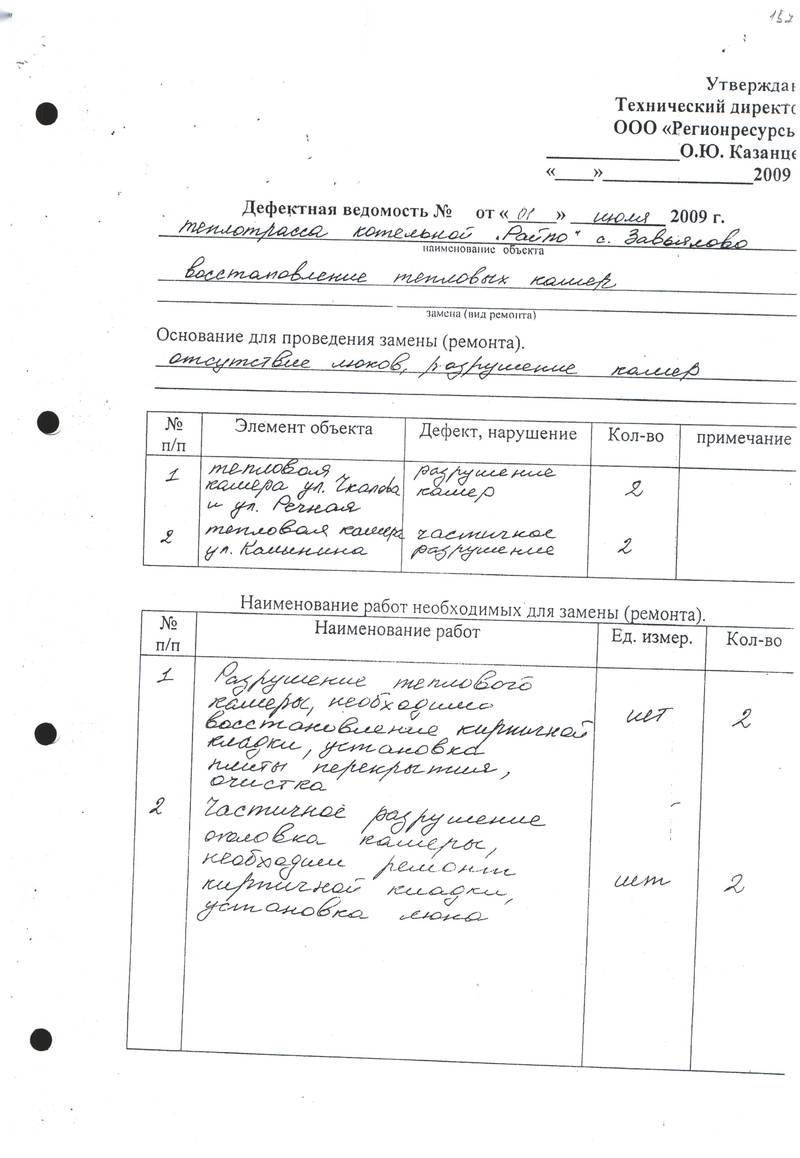 157
Утвержда
Технический директо
ООО «Регионресурсы
______________О.Ю. Казанце
«____»________________2009
Дефектная ведомость № от « 01 » июля 2009 г.
теплотрасса котельной "Райпо" с. Завьялово
наименование объекта
восстановление тепловых камер
замена (вид ремонта)
Основание для проведения замены (ремонта).
отсутствие люков, разрушение камер
№ п/п Элемент объекта Дефект, нарушение Кол-во примечание
1 тепловая разрушение
камера ул. Чкалова камер 2
и ул. Речная
2 тепловая камера частичное
ул. Калинина разрушение 2
Наименование работ необходимых для замены (ремонта).
№ п/п Наименование работ Ед. измер. Кол-во
1 Разрушение теплового
камеры, необходимо
восстановление кирпичной шт 2
кладки, установка
плиты перекрытия,
очистка
2 Частичное разрушение
оголовка камеры,
необходим ремонт
кирпичной кладки, шт 2
установка люка